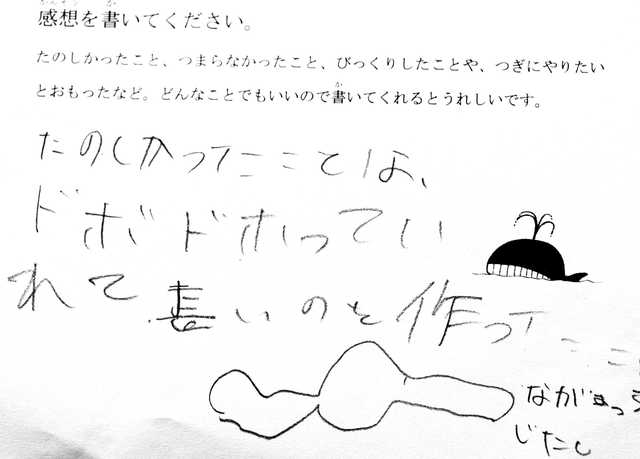 かんそう か
感想を書いてください。
たのしかったこと、つまらなかったこと、びっくりしたことや、つぎにやりたい
か
とおもったなど。どんなことでもいいので書いてくれるとうれしいです。
たのしかったことは、
ドボドボってい
れて長いのを作ったこ